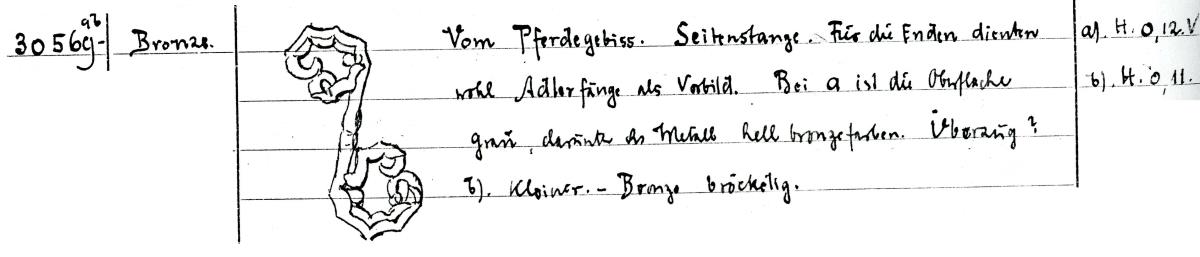 3056g ab Bronze. Vom Pferdegebiss. Seitenstange. Für die Enden dienten a). H. 0,12. V
wohl Adlerfänge als Vorbild. Bei a ist die Oberfläche b). H. 0,11.
grau, darunter das Metall hell bronzefarben. Überzug?
b). Kleiner. - Bronze bröckelig.